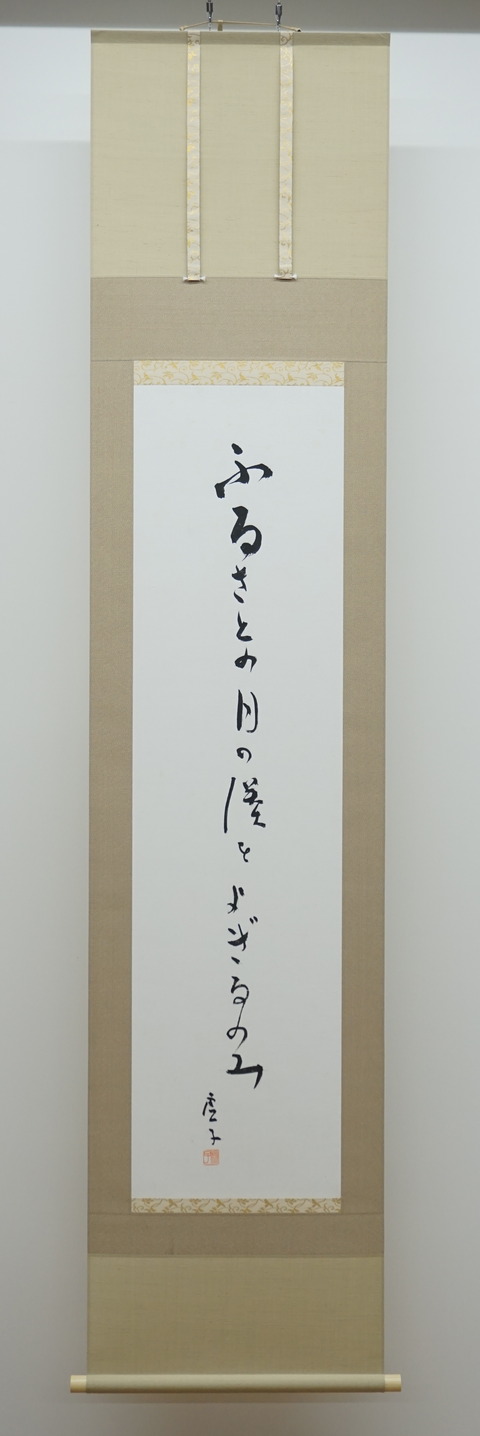 ふるさとの月の港をよぎるのみ
虚子